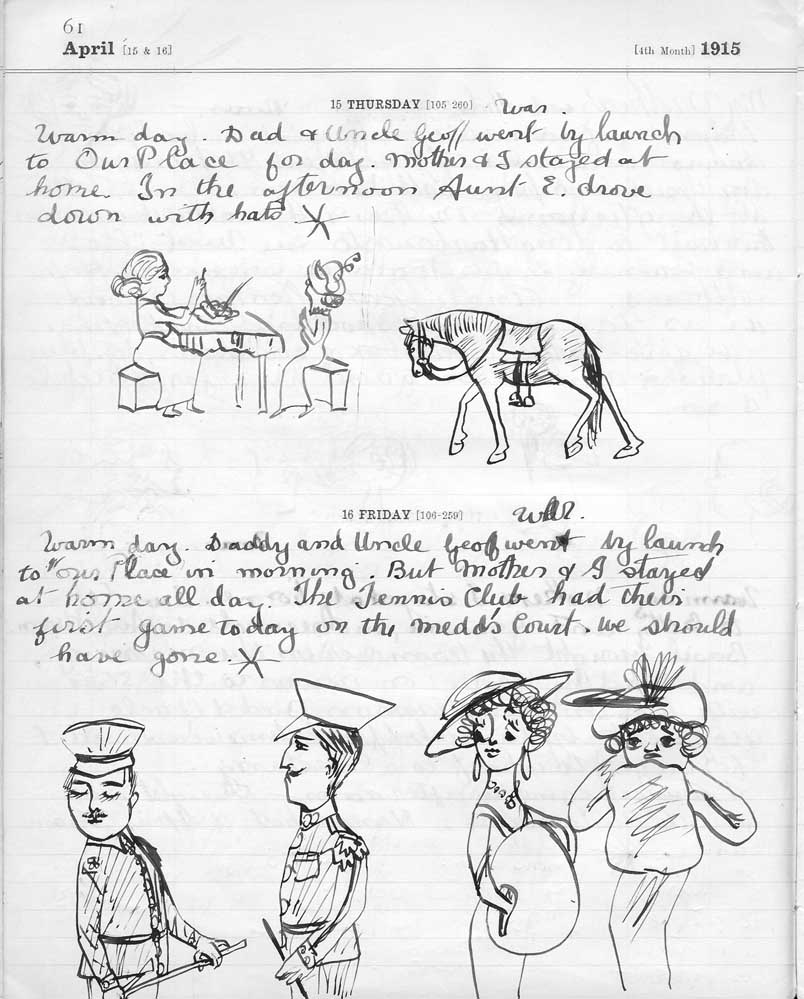 61
April [15 & 16] [4th Month] 1915
15 THURSDAY [105-260] War.
Warm day. Dad & Uncle Geoff went by launch
to Our Place for day. Mother & I stayed at
home. In the afternoon Aunt E. drove
down with hats.
16 FRIDAY [106-259] War.
Warm day. Daddy and Uncle Geoff went by launch
to "Our Place" in morning. But Mother & I stayed
at home all day. The Tennis Club had their
first game today on the Medd's Court. We should
have gone.